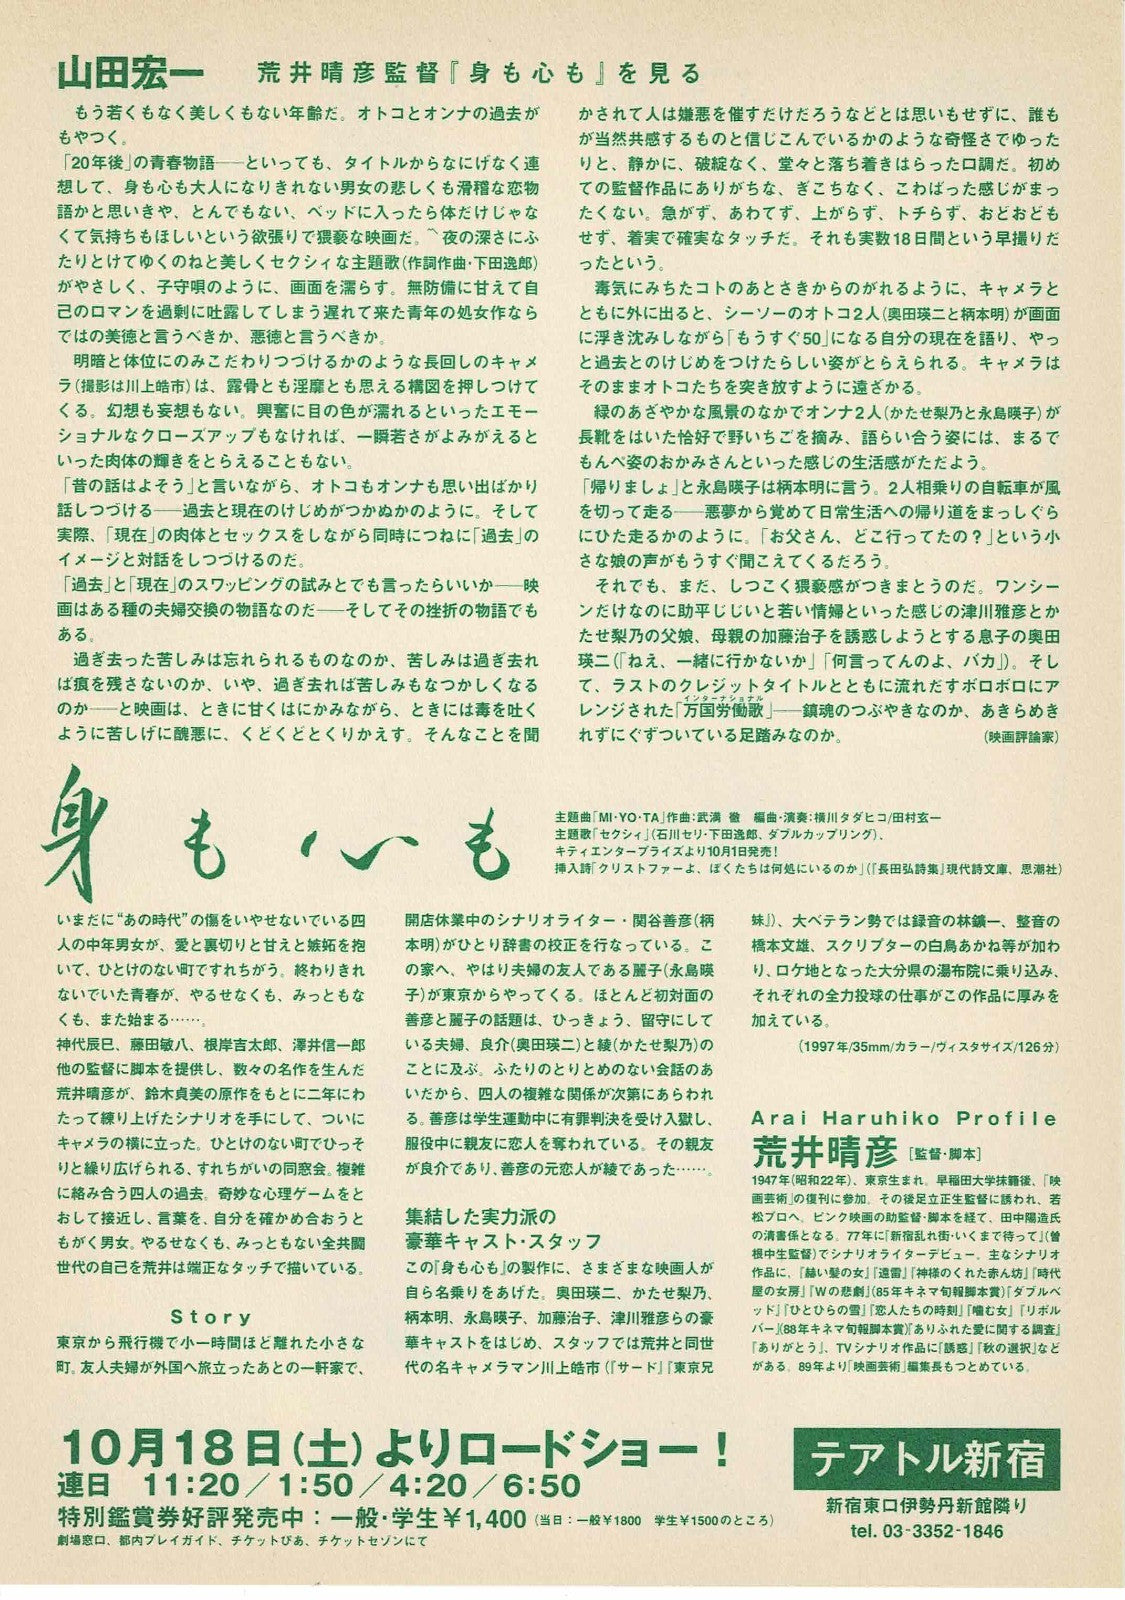 山田宏一　荒井晴彦監督『身も心も』を見る
　もう若くもなく美しくもない年齢だ。オトコとオンナの過去が
もやつく。
「20年後」の青春物語──といっても、タイトルからなにげなく連
想して、身も心も大人になりきれない男女の悲しくも滑稽な恋物
語かと思いきや、とんでもない、ベッドに入ったら体だけじゃな
くて気持ちもほしいという欲張りで猥褻な映画だ。〽夜の深さにふ
たりとけてゆくのねと美しくセクシィな主題歌(作詞作曲・下田逸郎)
がやさしく、子守唄のように、画面を濡らす。無防備に甘えて自
己のロマンを過剰に吐露してしまう遅れて来た青年の処女作なら
ではの美徳と言うべきか、悪徳と言うべきか。
　明暗と体位にのみこだわりつづけるかのような長回しのキャメ
ラ(撮影は川上皓市)は、露骨とも淫靡とも思える構図を押しつけて
くる。幻想も妄想もない。興奮に目の色が濡れるといったエモー
ショナルなクローズアップもなければ、一瞬若さがよみがえると
いった肉体の輝きをとらえることもない。
「昔の話はよそう」と言いながら、オトコもオンナも思い出ばかり
話しつづける──過去と現在のけじめがつかぬかのように。そして
実際、「現在」の肉体とセックスをしながら同時につねに「過去」の
イメージと対話をしつづけるのだ。
「過去」と「現在」のスワッピングの試みとでも言ったらいいか──映
画はある種の夫婦交換の物語なのだ──そしてその挫折の物語でも
ある。
　過ぎ去った苦しみは忘れられるものなのか、苦しみは過ぎ去れ
ば痕を残さないのか、いや、過ぎ去れば苦しみもなつかしくなる
のか──と映画は、ときに甘くはにかみながら、ときには毒を吐く
ように苦しげに醜悪に、くどくどとくりかえす。そんなことを聞
かされて人は嫌悪を催すだけだろうなどとは思いもせずに、誰も
が当然共感するものと信じこんでいるかのような奇怪さでゆった
りと、静かに、破綻なく、堂々と落ち着きはらった口調だ。初め
ての監督作品にありがちな、ぎこちなく、こわばった感じがまっ
たくない。急がず、あわてず、上がらず、トチらず、おどおども
せず、着実で確実なタッチだ。それも実数18日間という早撮りだ
ったという。
　毒気にみちたコトのあとさきからのがれるように、キャメラと
ともに外に出ると、シーソーのオトコ2人(奥田瑛二と柄本明)が画面
に浮き沈みしながら「もうすぐ50」になる自分の現在を語り、やっ
と過去とのけじめをつけたらしい姿がとらえられる。キャメラは
そのままオトコたちを突き放すように遠ざかる。
　緑のあざやかな風景のなかでオンナ2人(かたせ梨乃と永島暎子)が
長靴をはいた恰好で野いちごを摘み、語らい合う姿には、まるで
もんぺ姿のおかみさんといった感じの生活感がただよう。
「帰りましょ」と永島暎子は柄本明に言う。2人相乗りの自転車が風
を切って走る──悪夢から覚めて日常生活への帰り道をまっしぐら
にひた走るかのように。「お父さん、どこ行ってたの？」という小
さな娘の声がもうすぐ聞こえてくるだろう。
　それでも、まだ、しつこく猥褻感がつきまとうのだ。ワンシー
ンだけなのに助平じじいと若い情婦といった感じの津川雅彦とか
たせ梨乃の父娘、母親の加藤治子を誘惑しようとする息子の奥田
瑛二(「ねえ、一緒に行かないか」「何言ってんのよ、バカ」)。そし
て、ラストのクレジットタイトルとともに流れだすボロボロにア
インターナショナル
レンジされた「万国労働歌」──鎮魂のつぶやきなのか、あきらめき
れずにぐずついている足踏みなのか。　(映画評論家)
身も心も
主題曲「MI・YO・TA」作曲：武満 徹　編曲・演奏：横川タダヒコ/田村玄一
主題歌「セクシィ」(石川セリ・下田逸郎、ダブルカップリング)、
キティエンタープライズより10月1日発売！
挿入詩「クリストファーよ、ぼくたちは何処にいるのか」(『長田弘詩集』現代詩文庫、思潮社)
いまだに“あの時代”の傷をいやせないでいる四
人の中年男女が、愛と裏切りと甘えと嫉妬を抱
いて、ひとけのない町ですれちがう。終わりきれ
ないでいた青春が、やるせなくも、みっともな
くも、また始まる……。
神代辰巳、藤田敏八、根岸吉太郎、澤井信一郎
他の監督に脚本を提供し、数々の名作を生んだ
荒井晴彦が、鈴木貞美の原作をもとに二年にわ
たって練り上げたシナリオを手にして、ついに
キャメラの横に立った。ひとけのない町でひっそ
りと繰り広げられる、すれちがいの同窓会。複雑
に絡み合う四人の過去。奇妙な心理ゲームをと
おして接近し、言葉を、自分を確かめ合おうと
もがく男女。やるせなくも、みっともない全共闘
世代の自己を荒井は端正なタッチで描いている。
Story
東京から飛行機で小一時間ほど離れた小さな
町。友人夫婦が外国へ旅立ったあとの一軒家で、
開店休業中のシナリオライター・関谷善彦(柄
本明)がひとり辞書の校正を行なっている。こ
の家へ、やはり夫婦の友人である麗子(永島暎
子)が東京からやってくる。ほとんど初対面の
善彦と麗子の話題は、ひっきょう、留守にして
いる夫婦、良介(奥田瑛二)と綾(かたせ梨乃)の
ことに及ぶ。ふたりのとりとめのない会話のあ
いだから、四人の複雑な関係が次第にあらわれ
る。善彦は学生運動中に有罪判決を受け入獄し、
服役中に親友に恋人を奪われている。その親友
が良介であり、善彦の元恋人が綾であった……。
集結した実力派の
豪華キャスト・スタッフ
この『身も心も』の製作に、さまざまな映画人が
自ら名乗りをあげた。奥田瑛二、かたせ梨乃、
柄本明、永島暎子、加藤治子、津川雅彦らの豪
華キャストをはじめ、スタッフでは荒井と同世
代の名キャメラマン川上皓市(『サード』『東京兄
妹』)、大ベテラン勢では録音の林鑛一、整音の
橋本文雄、スクリプターの白鳥あかね等が加わ
り、ロケ地となった大分県の湯布院に乗り込み、
それぞれの全力投球の仕事がこの作品に厚みを
加えている。
(1997年/35mm/カラー/ヴィスタサイズ/126分)
Arai Haruhiko Profile
荒井晴彦 [監督・脚本]
1947年(昭和22年)、東京生まれ。早稲田大学抹籍後、『映
画芸術』の復刊に参加。その後足立正生監督に誘われ、若
松プロへ。ピンク映画の助監督・脚本を経て、田中陽造氏
の清書係となる。77年に『新宿乱れ街・いくまで待って』(曽
根中生監督)でシナリオライターデビュー。主なシナリオ
作品に、『赫い髪の女』『遠雷』『神様のくれた赤ん坊』『時代
屋の女房』『Wの悲劇』(85年キネマ旬報脚本賞)『ダブルベ
ッド』『ひとひらの雪』『恋人たちの時刻』『噛む女』『リボル
バー』(88年キネマ旬報脚本賞)『ありふれた愛に関する調査』
『ありがとう』、TVシナリオ作品に『誘惑』『秋の選択』など
がある。89年より『映画芸術』編集長もつとめている。
10月18日(土)よりロードショー！
連日　11:20／1:50／4:20／6:50
特別鑑賞券好評発売中：一般・学生￥1,400（当日：一般￥1800　学生￥1500のところ）
劇場窓口、都内プレイガイド、チケットぴあ、チケットセゾンにて
テアトル新宿
新宿東口伊勢丹新館隣り
tel. 03-3352-1846